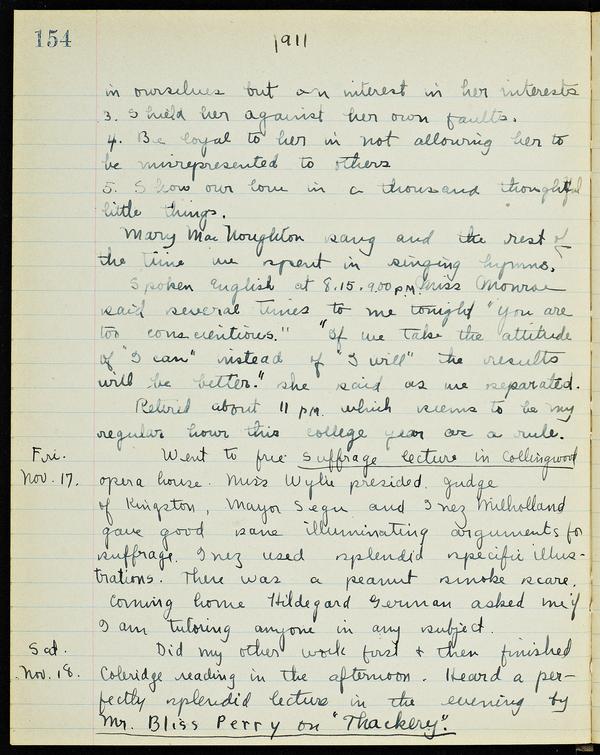 154
1911
in ourselves but an interest in her interests
3. Shield her against her own faults.
4. Be loyal to her in not allowing her to
be misrepresented to others
5. Show our love in a thousand thoughtful
little things.
Mary MacNoughton sang and the rest of
the time we spent in singing hymns.
Spoken English at 8.15-9.00 P.M. Miss Monroe
said several times to me tonight "you are
too conscientious." "If we take the attitude
of "I can" instead of "I will" the results
will be better." she said as we separated.
Retired about 11 P.M. which seems to be my
regular hour this college year as a rule.
Fri. Went to free Suffrage lecture in Collingwood
Nov. 17. opera house. Miss Wylie presided. Judge
of Kingston, Mayor Segu and Inez Milholland
gave good sane illuminating arguments for
suffrage. Inez used splendid specific illus-
trations. There was a peanut smoke scare.
Coming home Hildegard German asked me if
I am tutoring anyone in any subject.
Sat. Did my other work first & then finished
Nov. 18. Coleridge reading in the afternoon. Heard a per-
fectly splendid lecture in the evening by
Mr. Bliss Perry on "Thackery".